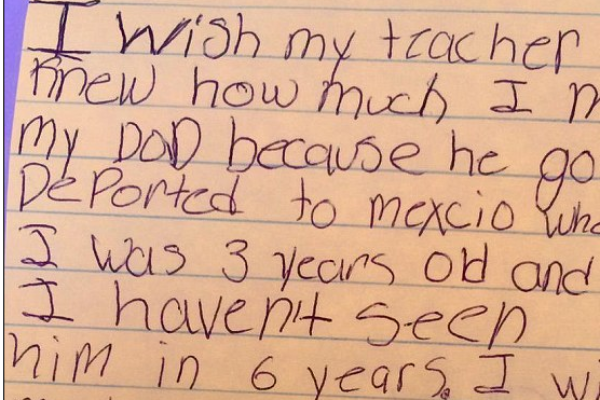 I wish my teacher
knew how much I m
my DaD because he go
DePorted to mexcio whe
I was 3 years old and
I haven't seen
him in 6 years. I wi